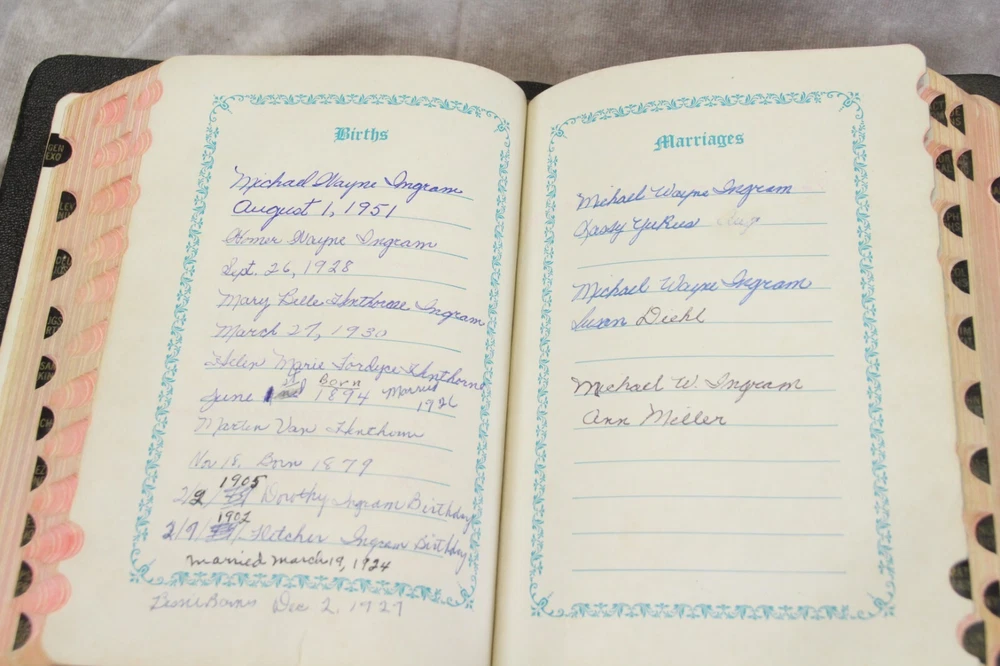 Births
Michael Wayne Ingram
August 1, 1951
Homer Wayne Ingram
Sept. 26, 1928
Mary Belle Henthorne Ingram
March 27, 1930
Helen Marie Fordyce Henthorne
June 1st Born 1894 Married 1926
Martin Van Henthorne
Nov 18, Born 1879
2/2/1905 Dorothy Ingram Birthday
2/9/1902 Fletcher Ingram Birthday
married march 19, 1924
Dec 2, 1927
Marriages
Michael Wayne Ingram
Aug
Michael Wayne Ingram
Susan Diehl
Michael W. Ingram
Ann Miller
GEN
EXO